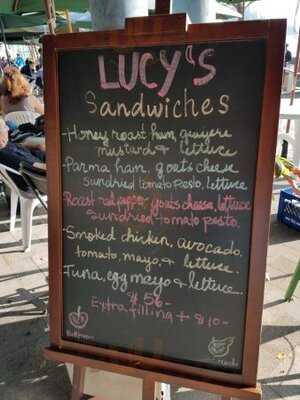 LUCY'S
Sandwiches
- Honey roast ham, gruyere
mustard & lettuce
- Parma ham, goats cheese
sundried tomato pesto, lettuce
- Roast red pepper, goats cheese, lettuce
sundried tomato pesto.
- Smoked chicken, avocado,
tomato, mayo, & lettuce.
- Tuna, egg mayo & lettuce.
$ 56-
Extra filling + $10-